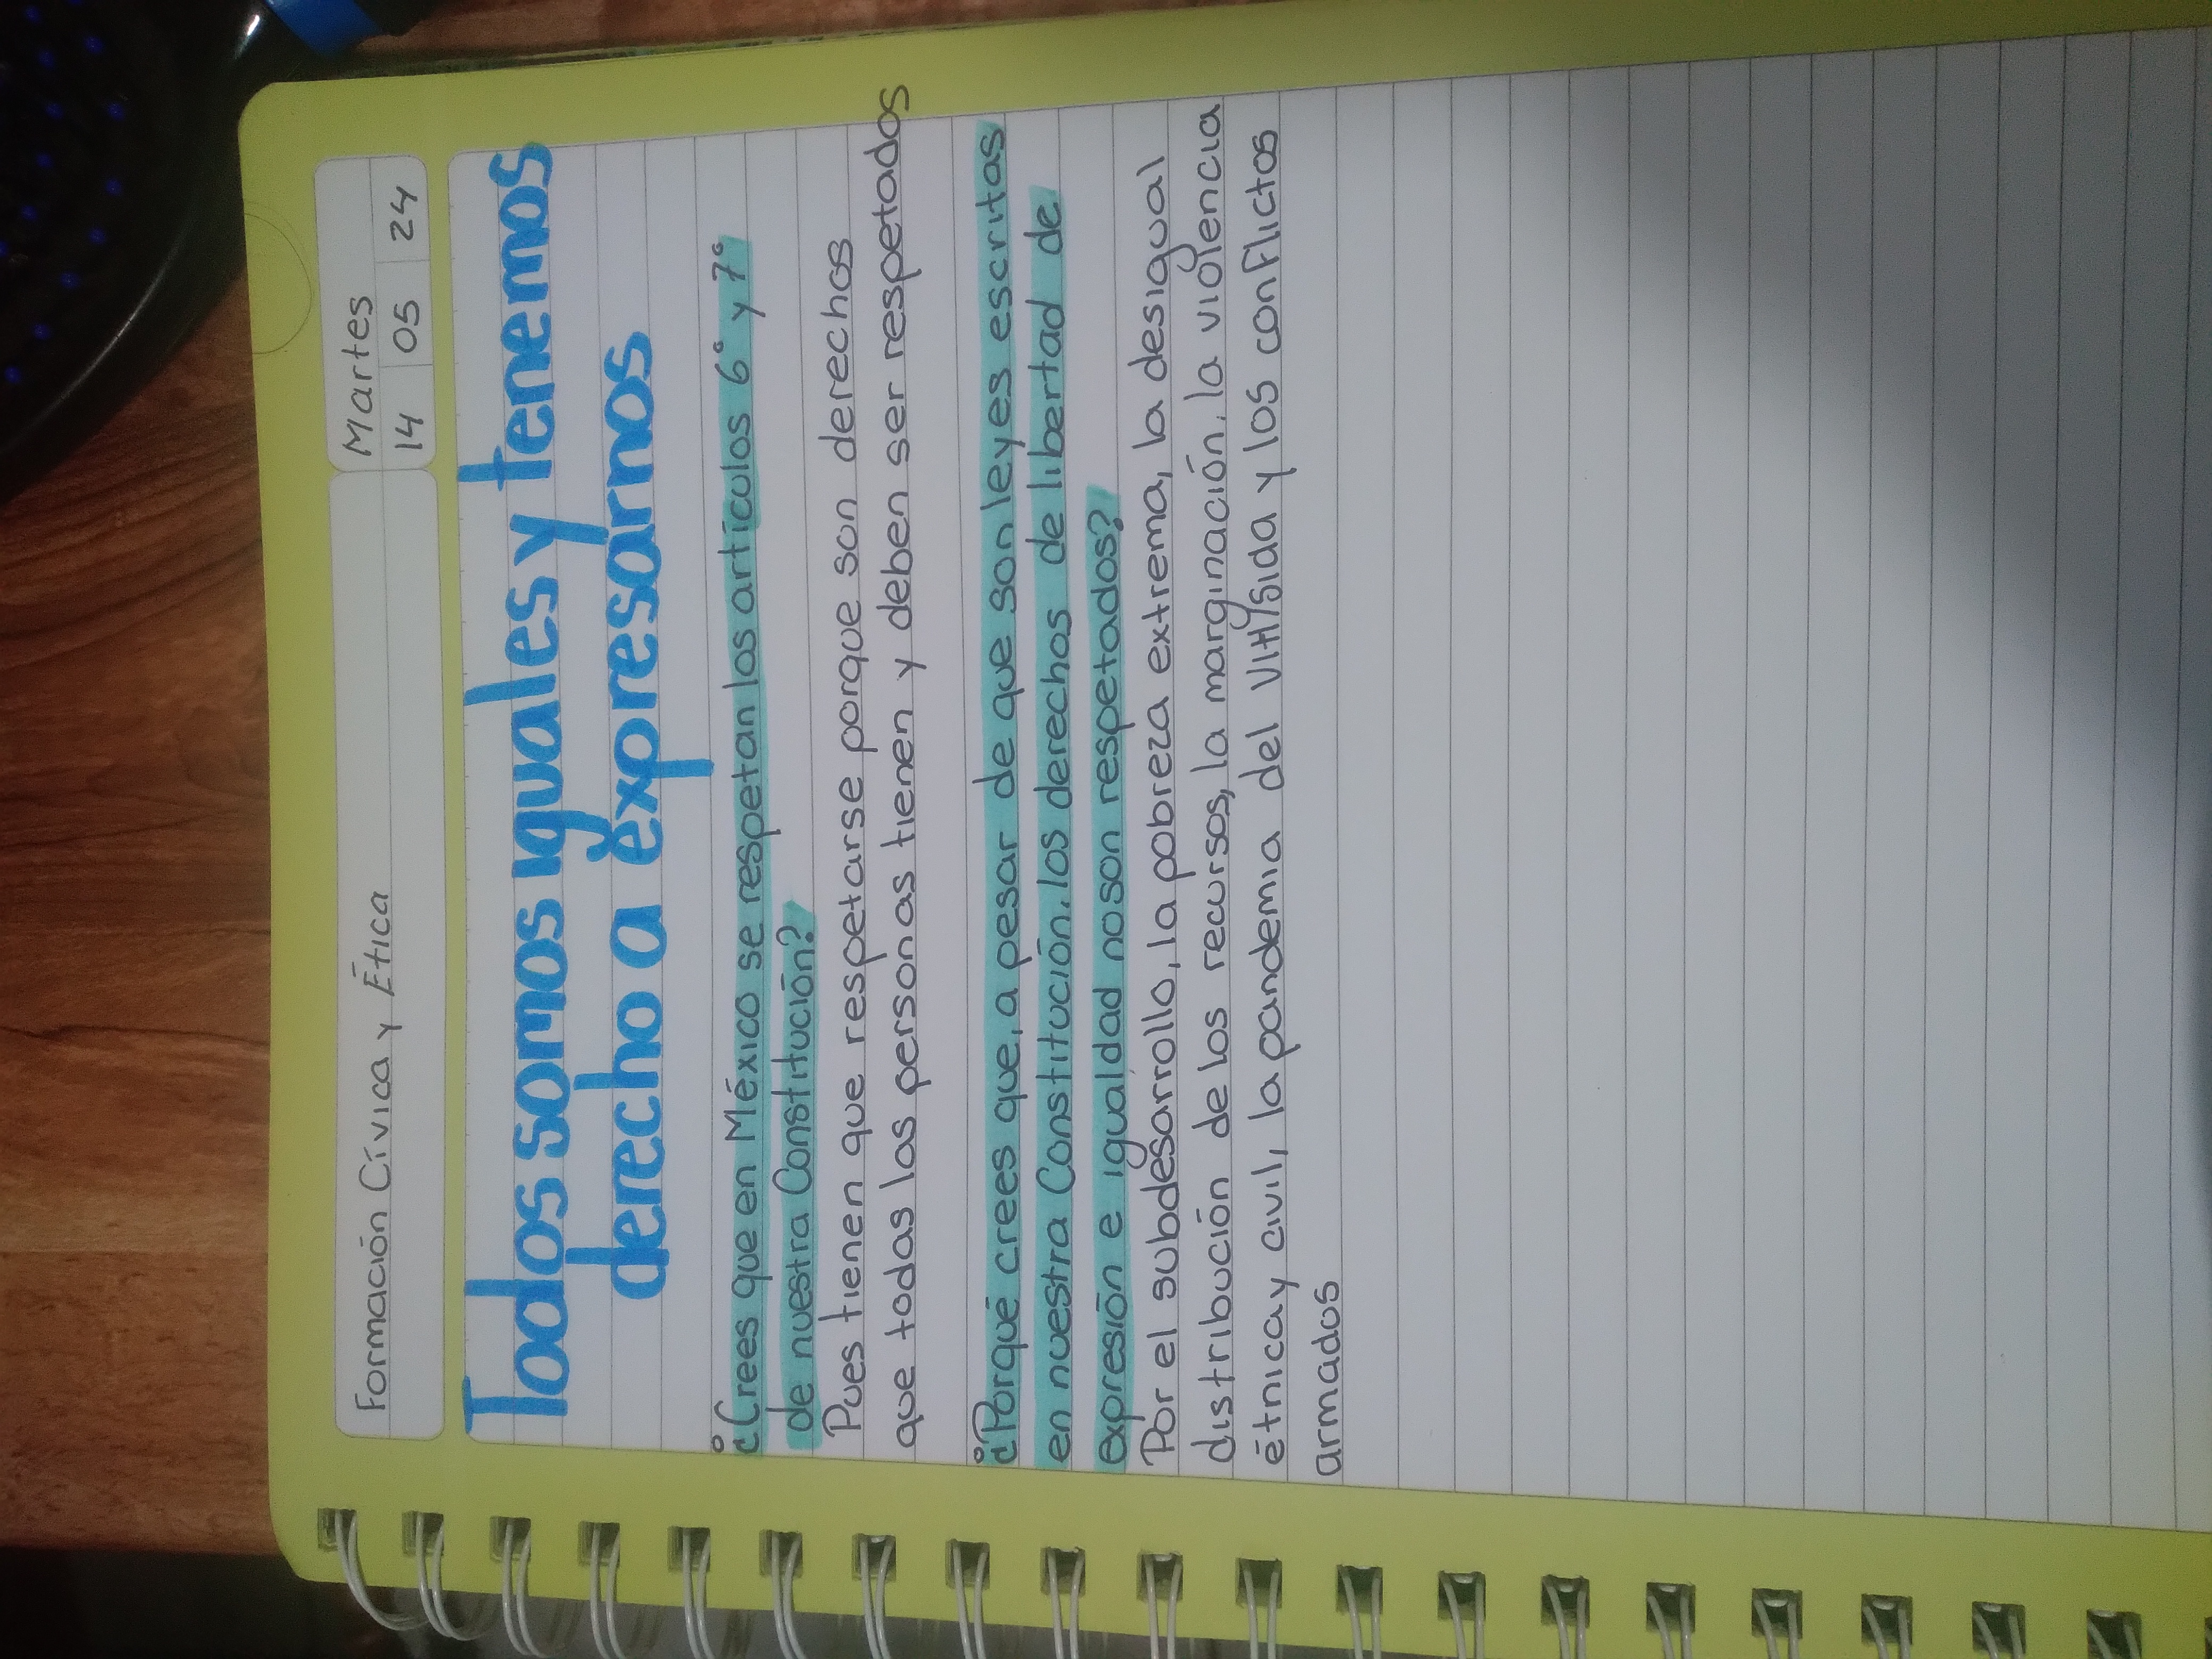 Formación Cívica y Ética
Martes
14 05 24
Todos somos iguales y tenemos
derecho a expresarnos
¿Crees que en México se respetan los artículos 6° y 7°
de nuestra Constitución?
Pues tienen que respetarse porque son derechos
que todas las personas tienen y deben ser respetados
¿Porqué crees que, a pesar de que son leyes escritas
en nuestra Constitución, los derechos de libertad de
expresión e igualdad no son respetados?
Por el subdesarrollo, la pobreza extrema, la desigual
distribución de los recursos, la marginación, la violencia
étnica y civil, la pandemia del VIH/Sida y los conflictos
armados